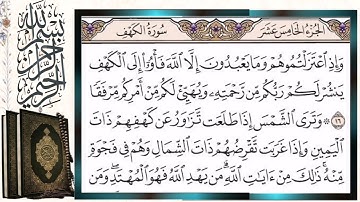 بسم الله الرحمن الرحيم
الجزء الخامس عشر
سورة الكهف
وَإِذِ ٱعْتَزَلْتُمُوهُمْ وَمَا يَعْبُدُونَ إِلَّا ٱللَّهَ فَأْوُۥٓا۟ إِلَى ٱلْكَهْفِ
يَنشُرْ لَكُمْ رَبُّكُم مِّن رَّحْمَتِهِۦ وَيُهَيِّئْ لَكُم مِّنْ أَمْرِكُم مِّرْفَقًا
١٦ ۞ وَتَرَى ٱلشَّمْسَ إِذَا طَلَعَت تَّزَٰوَرُ عَن كَهْفِهِمْ ذَاتَ
ٱلْيَمِينِ وَإِذَا غَرَبَت تَّقْرِضُهُمْ ذَاتَ ٱلشِّمَالِ وَهُمْ فِى فَجْوَةٍ
مِّنْهُ ۚ ذَٰلِكَ مِنْ ءَايَٰتِ ٱللَّهِ ۗ مَن يَهْدِ ٱللَّهُ فَهُوَ ٱلْمُهْتَدِ ۖ وَمَن